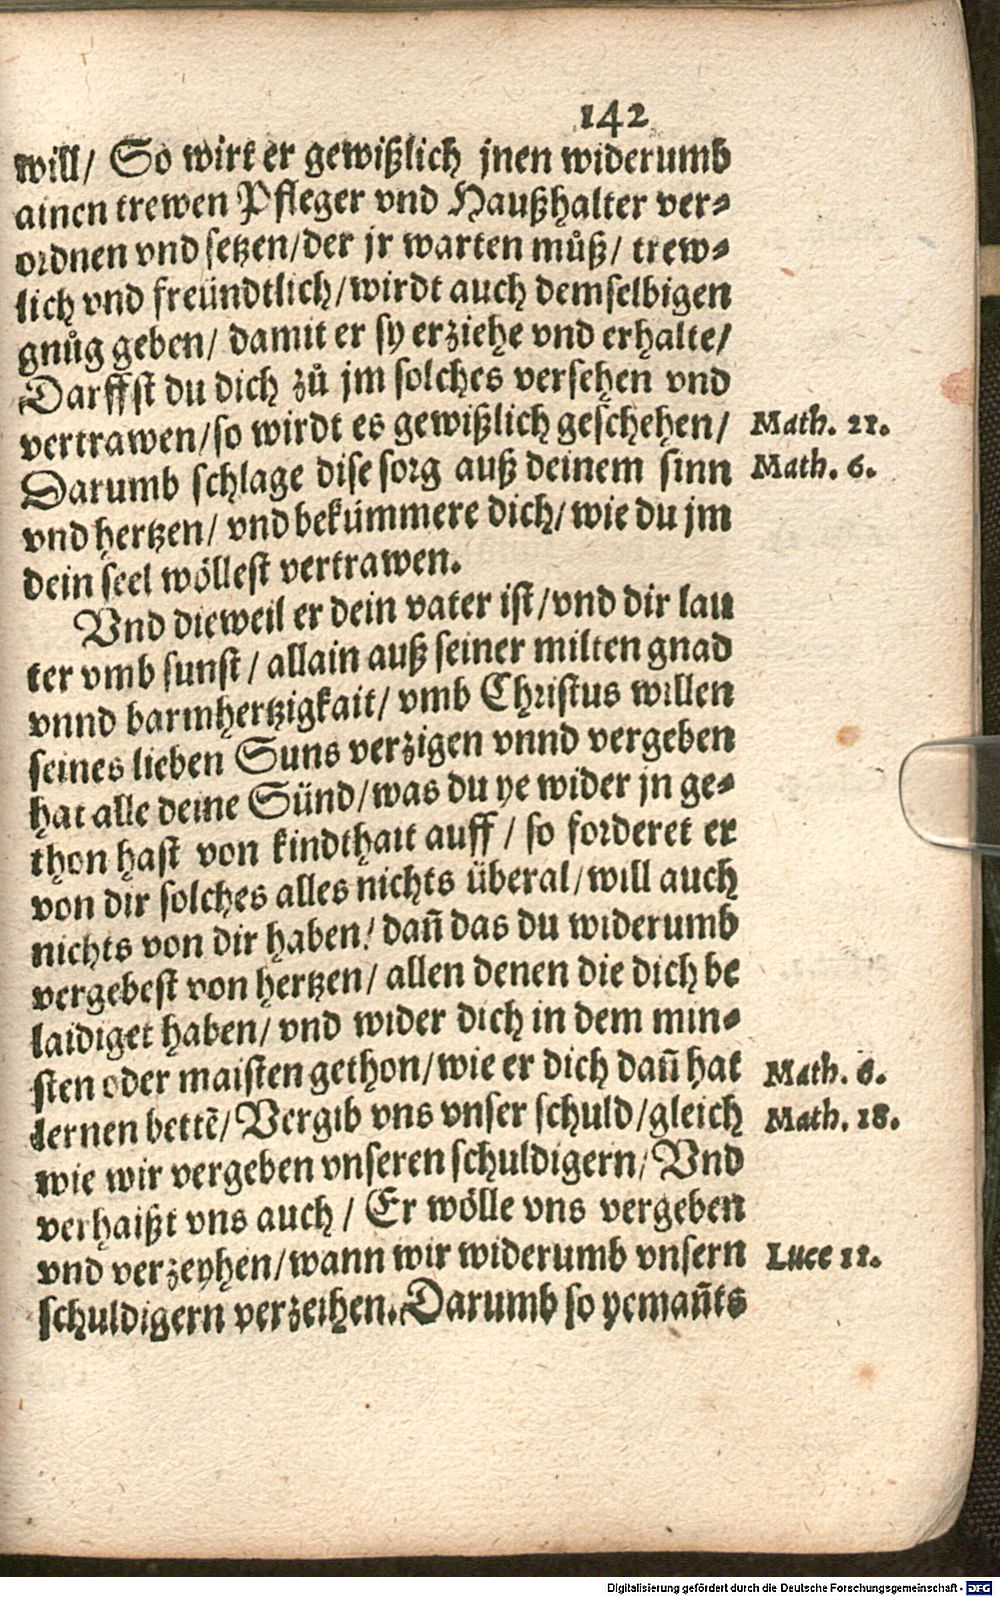 142
will/ So wirt er gewißlich jnen widerumb
ainen trewen Pfleger vnd Haußhalter ver-
ordnen vnd setzen/der jr warten můß/ trew-
lich vnd freündtlich/wirdt auch demselbigen
gnůg geben/ damit er sy erziehe vnd erhalte/
Darffst du dich zů jm solches versehen vnd
vertrawen/so wirdt es gewißlich geschehen/ Math. 21.
Darumb schlage dise sorg auß deinem sinn Math. 6.
vnd hertzen/ vnd bekümmere dich/ wie du jm
dein seel wöllest vertrawen.
Vnd dieweil er dein vater ist/vnd dir lau
ter vmb sunst/ allain auß seiner milten gnad
vnnd barmhertzigkait/ vmb Christus willen
seines lieben Suns verzigen vnnd vergeben
hat alle deine Sünd/was du ye wider jn ge-
thon hast von kindthait auff/ so forderet er
von dir solches alles nichts überal/will auch
nichts von dir haben/ dañ das du widerumb
vergebest von hertzen/ allen denen die dich be
laidiget haben/ vnd wider dich in dem min-
sten oder maisten gethon/wie er dich dañ hat Math. 6.
lernen bettẽ/ Vergib vns vnser schuld/gleich Math. 18.
wie wir vergeben vnseren schuldigern/ Vnd
verhaißt vns auch/ Er wölle vns vergeben
vnd verzeyhen/wann wir widerumb vnsern Luce 11.
schuldigern verzeihen. Darumb so yemañts
Digitalisierung gefördert durch die Deutsche Forschungsgemeinschaft - DFG